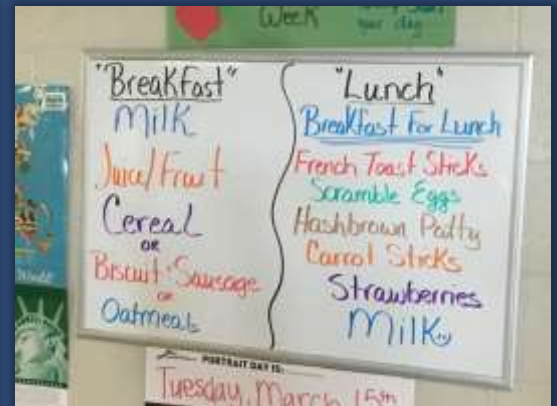 Week
your day
"Breakfast"
Milk
Juice/Fruit
Cereal
or
Biscuit + Sausage
or
Oatmeals
"Lunch"
Breakfast For Lunch
French Toast Sticks
Scramble Eggs
Hashbrown Patty
Carrot Sticks
Strawberries
Milk
PORTRAIT DAY IS:
Tuesday, March 15th